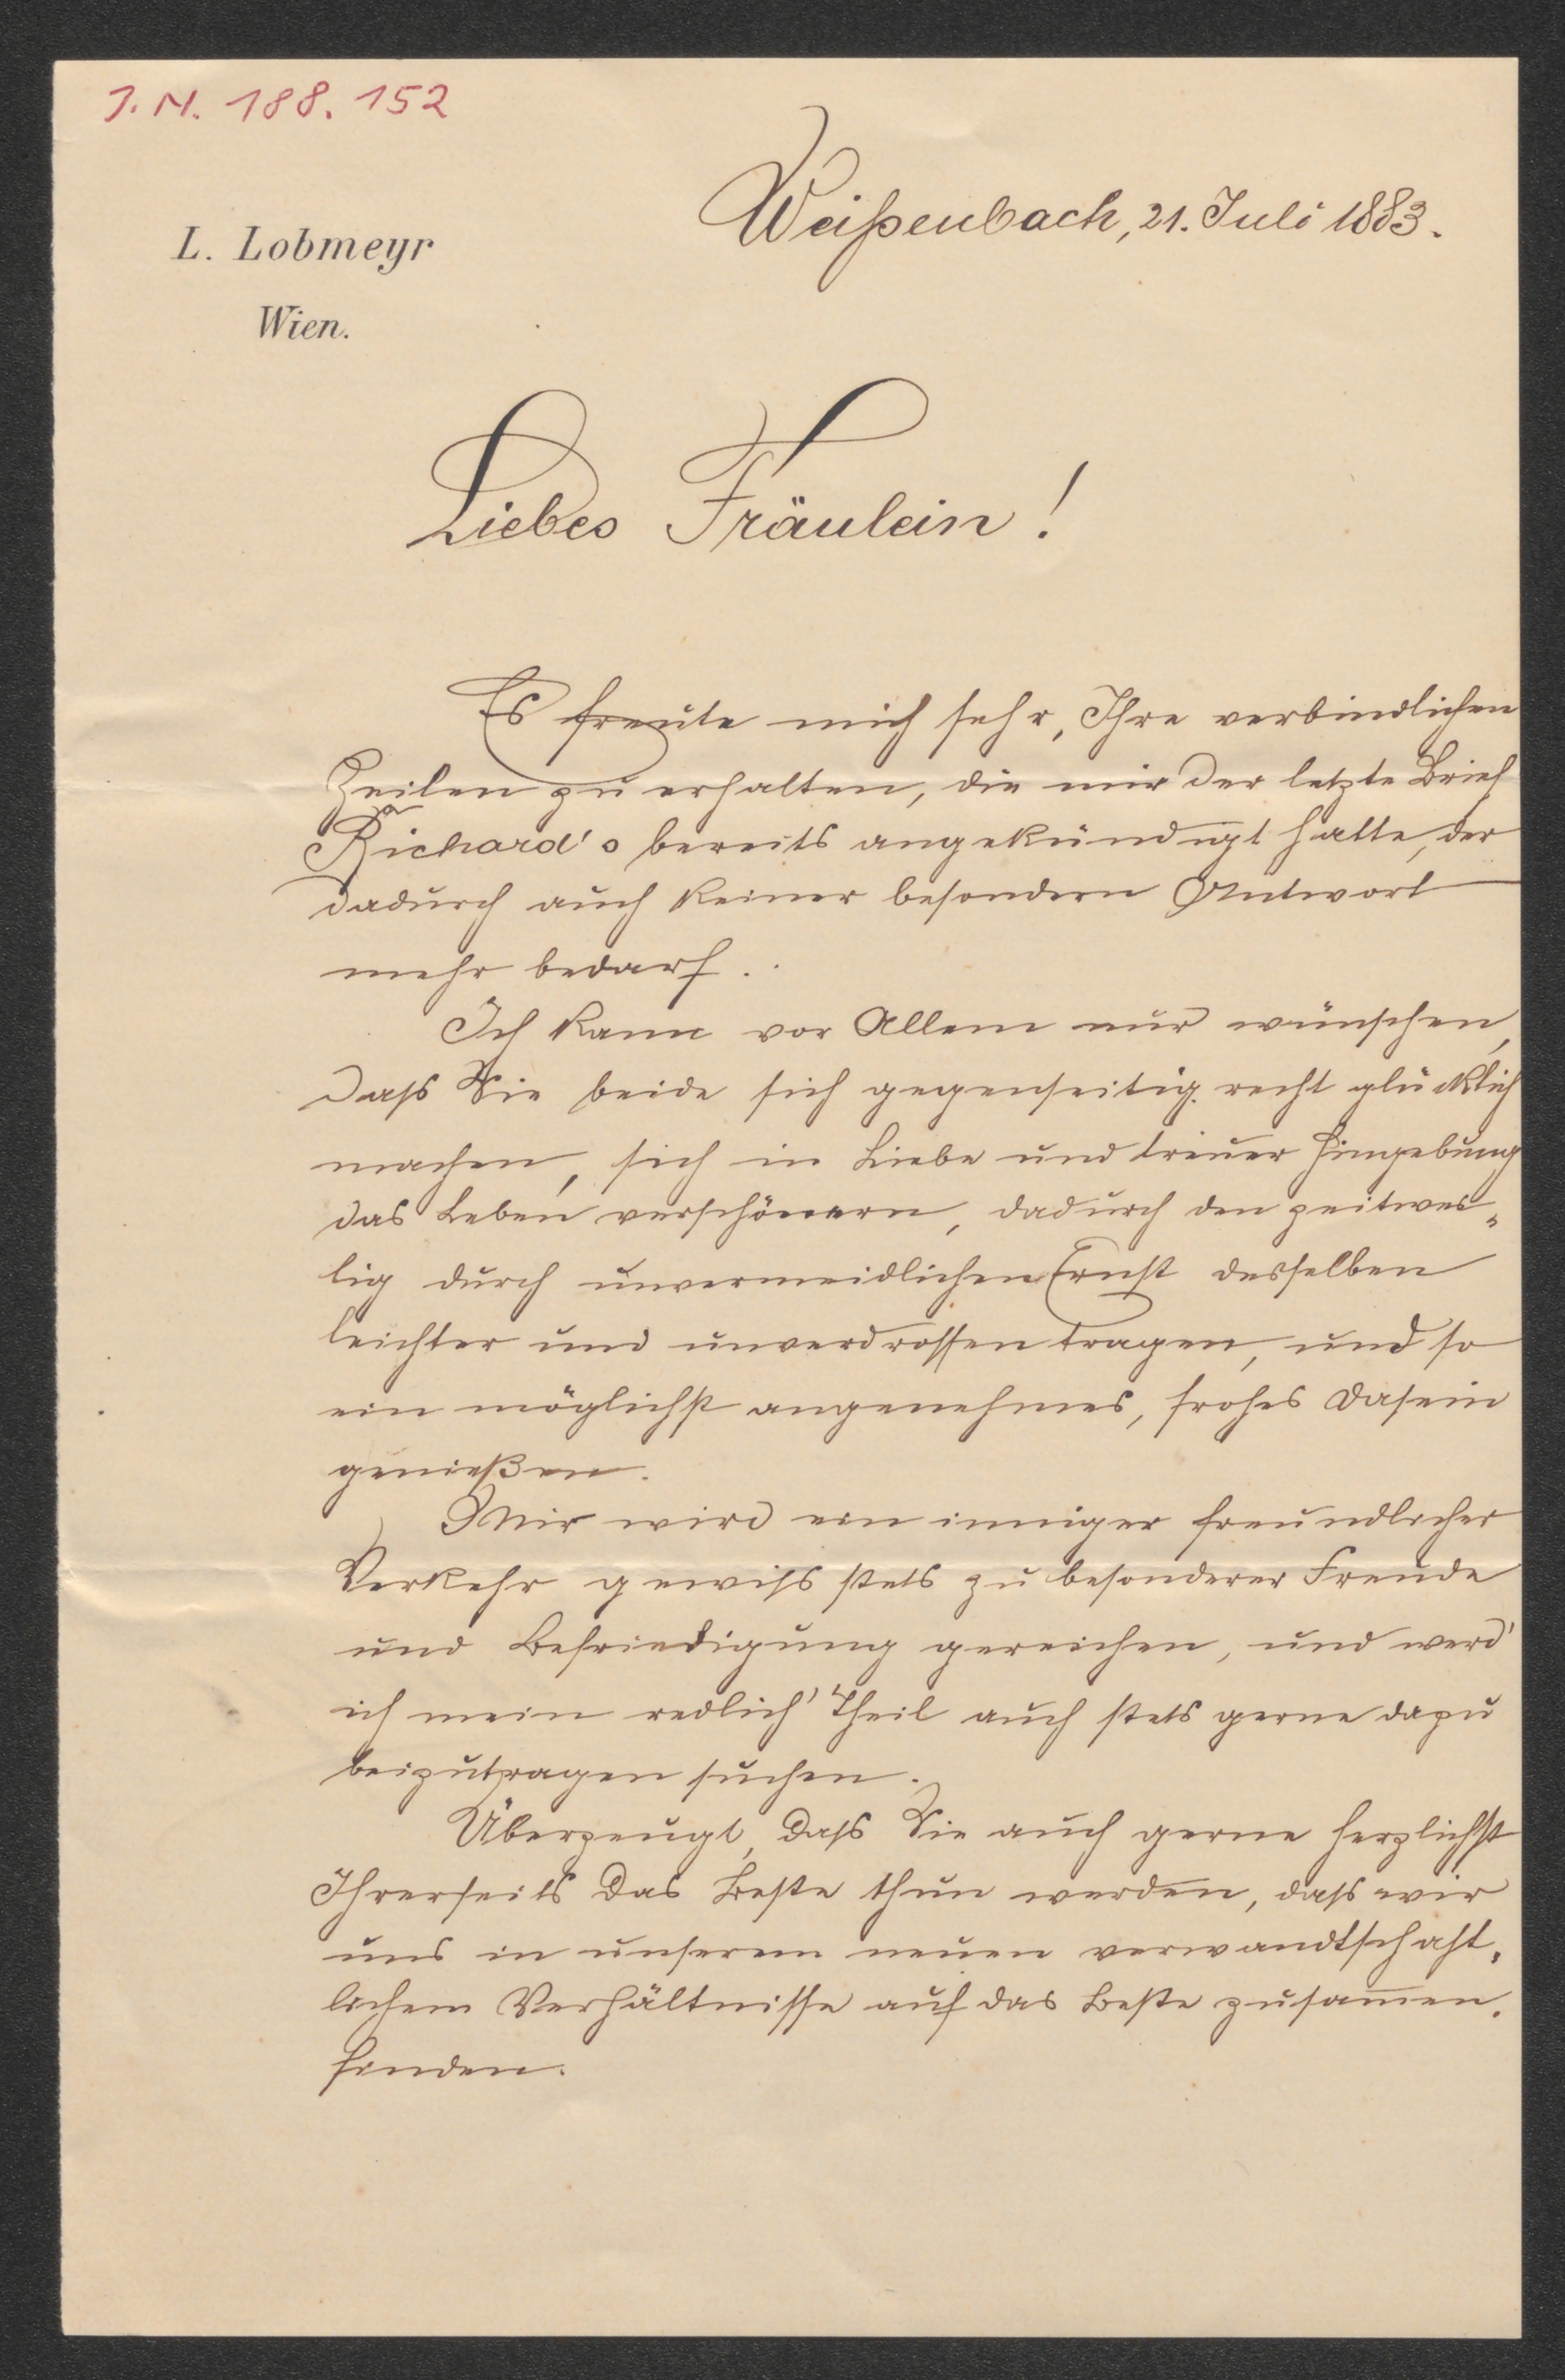 J. N. 188.152
Weißenbach, 21. Juli 1883.
L. Lobmeyr
Wien.
Liebes Fräulein!
Es freute mich sehr, Ihre verbindlichen
Zeilen zu erhalten, die mir der letzte Brief
Richard's bereits angekündigt hatte, der
dadurch auch keiner besondern Antwort
mehr bedarf.
Ich kann vor Allem nur wünschen,
daß Sie beide sich gegenseitig recht glücklich
machen, sich in Liebe und treuer Hingebung
das Leben verschönern, dadurch den zeitwei-
lig durch unvermeidlichen Ernst desselben
leichter und unverdrossen tragen, und so
ein möglichst angenehmes, frohes Dasein
genießen.
Mir wird ein inniger freundlicher
Verkehr gewiß stets zu besonderer Freude
und Befriedigung gereichen, und werd'
ich mein redlich' Theil auch stets gerne dazu
beizutragen suchen.
Überzeugt, daß Sie auch gerne herzlichst
Ihrerseits das Beste thun werden, daß wir
uns in unserem neuen verwandtschaft-
lichem Verhältnisse auf das Beste zusam̅en-
finden.